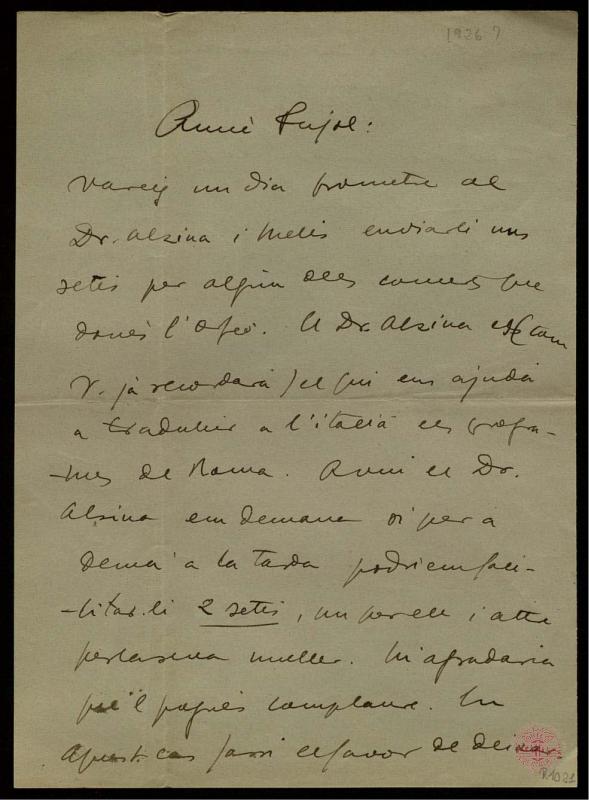 1926?
Amic Pujol:
Vareig un dia prometre al
Dr. Alsina i Melis enviarli uns
setis per algún dels concerts que
donés l'Orfeó. El Dr. Alsina es (com
V. ja recordará) el qui ens ajudá
a traduhir a l'italiá els progra-
-mes de Roma. Avui el Dr.
Alsina em demana si per a
demá a la tarda podriem faci-
-litar-li 2 setis, un per ell i altre
per la seva muller. M'agradaria
que'l pogués complaure. En
aquest cas fassi el favor de deixar